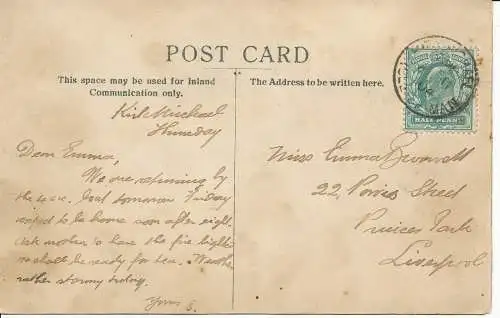 POST CARD
This space may be used for Inland
Communication only.
The Address to be written here.
HALFPENNY
Kirk Michael
Thursday
Dear Emma,
We are returning by
the 4 o.c. boat tomorrow Friday
expect to be home soon after eight.
Ask mother to have the fire light
we shall be ready for tea. Weather
rather stormy today.
Yours S.
Miss Emma
22, Street
Princes Park
Liverpool